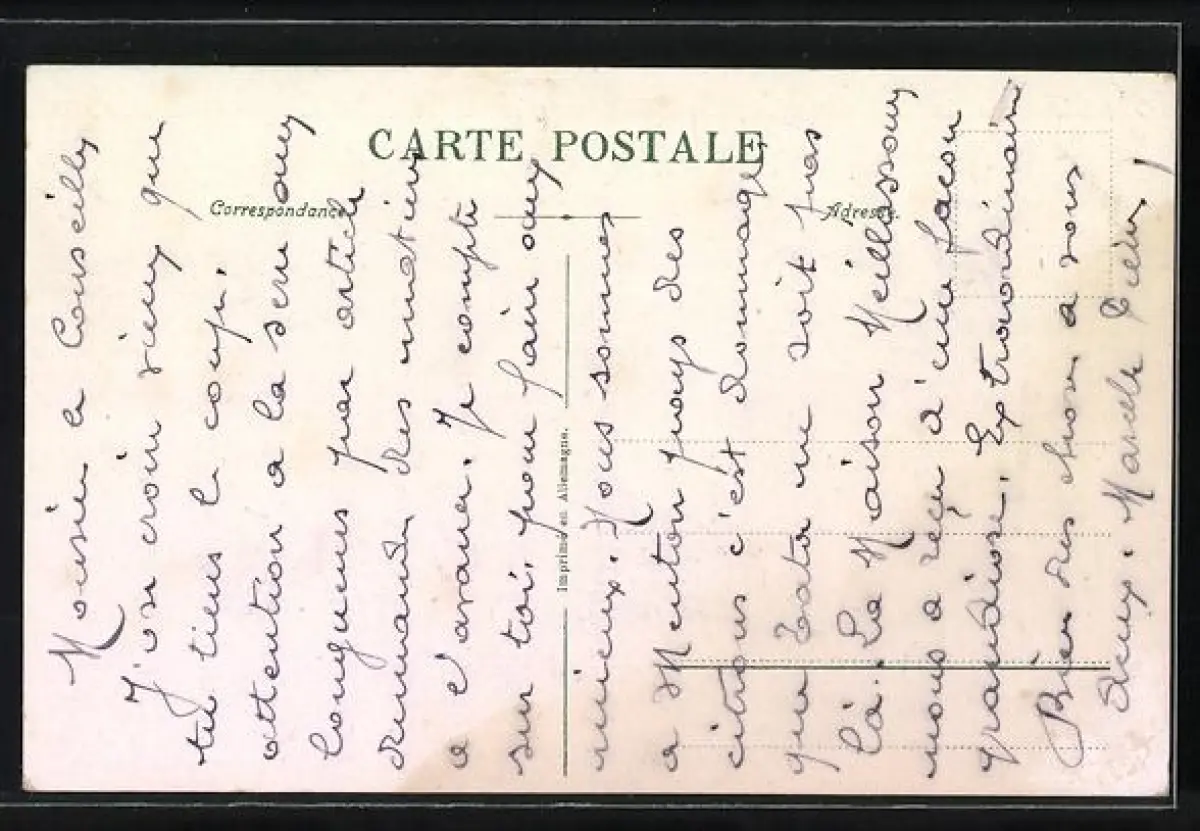 CARTE POSTALE
Correspondance
Adresse.
Imprimé en Allemagne.
le Conseiller
J'ose croire vieux que
tu tiens le coup.
attention a la serre aux
longueurs par article
demande des matières
a l'avance. Je compte
sur toi, pour faire aux
mieux. Nous sommes
a Menton pays des
citrons c'est dommage
que Tata ne soit pas
là. La Maison Meillassoux
nous a reçu d'une facon
grandiose. Extraordinaire
Bien des choses a vous
deux. Marcelle